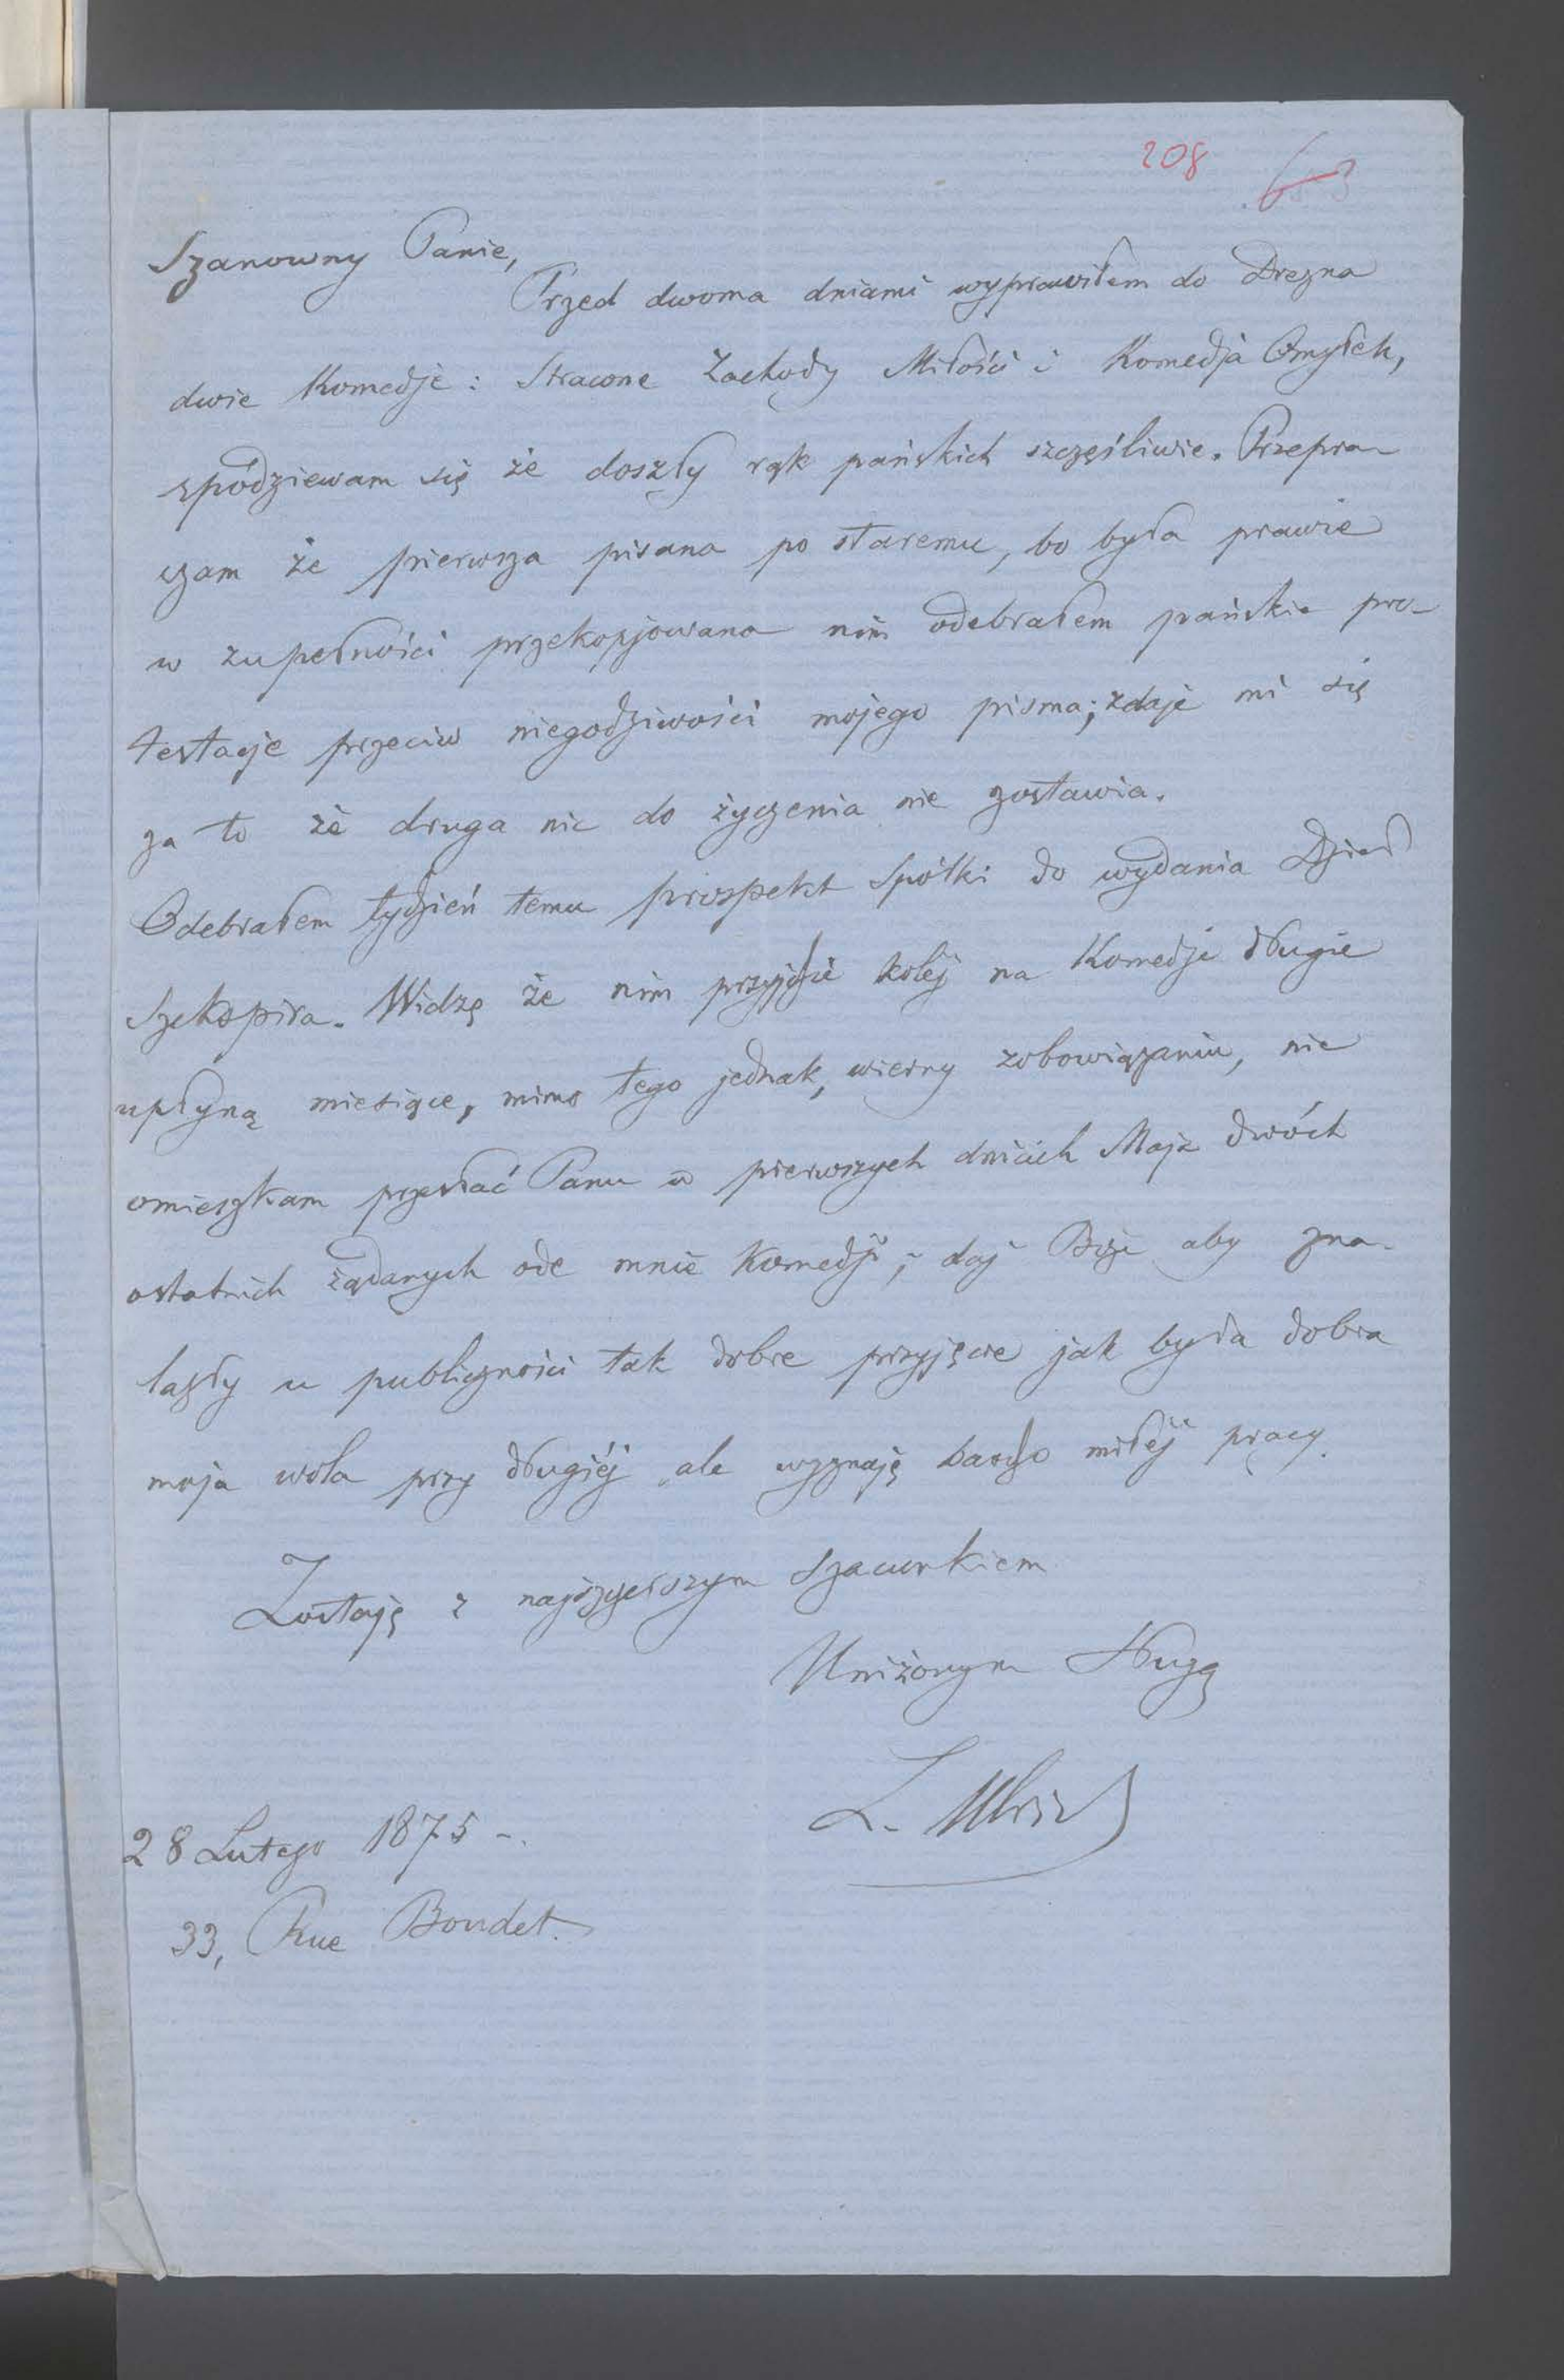 208 63
Szanowny Panie,
Przed dwoma dniami wyprawiłem do Drezna
dwie Komedje: Stracone Zachody Miłości i Komedja Omyłek,
spódziewam się że doszły rąk pańskich szczęśliwie. Przepra-
szam że pierwsza pisana po staremu, bo była prawie
w zupełności przekopjowana nim odebrałem pańskie pro-
testacje przeciw niegodziwości mojego pisma; zdaje mi się
za to że druga nic do życzenia nie zostawia.
Odebrałem tydzień temu prospekt Spółki do wydania Dzieł
Szekspira. Widzę że nim przyjdzie kolej na Komedje długie
upłyną miesiące, mimo tego jednak, wierny zobowiązaniu, nie
omieszkam przesłać Panu w pierwszych dniach Maja dwóch
ostatnich żądanych ode mnie Komedji; daj Boże aby zna-
lazły u publiczności tak dobre przyjęcie jak była dobra
moja wola przy długiéj ale wyznaję bardzo miłéj pracy.
Zostaję z najszczerszym szacunkiem
Uniżonym Sługą
L. Ulrich
28 Lutego 1875 -.
33, Rue Boudet.